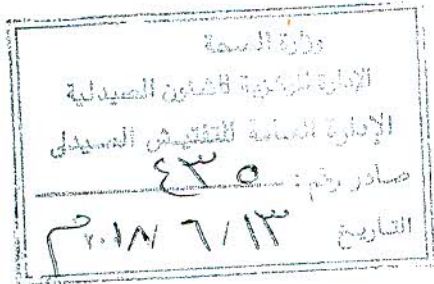 وزارة الصحة
الإدارة المركزية للشئون الصيدلية
الإدارة العامة للتفتيش الصيدلى
صادر رقم : ٤٣٥
التاريخ ٢٠١٨/٦/١٣م